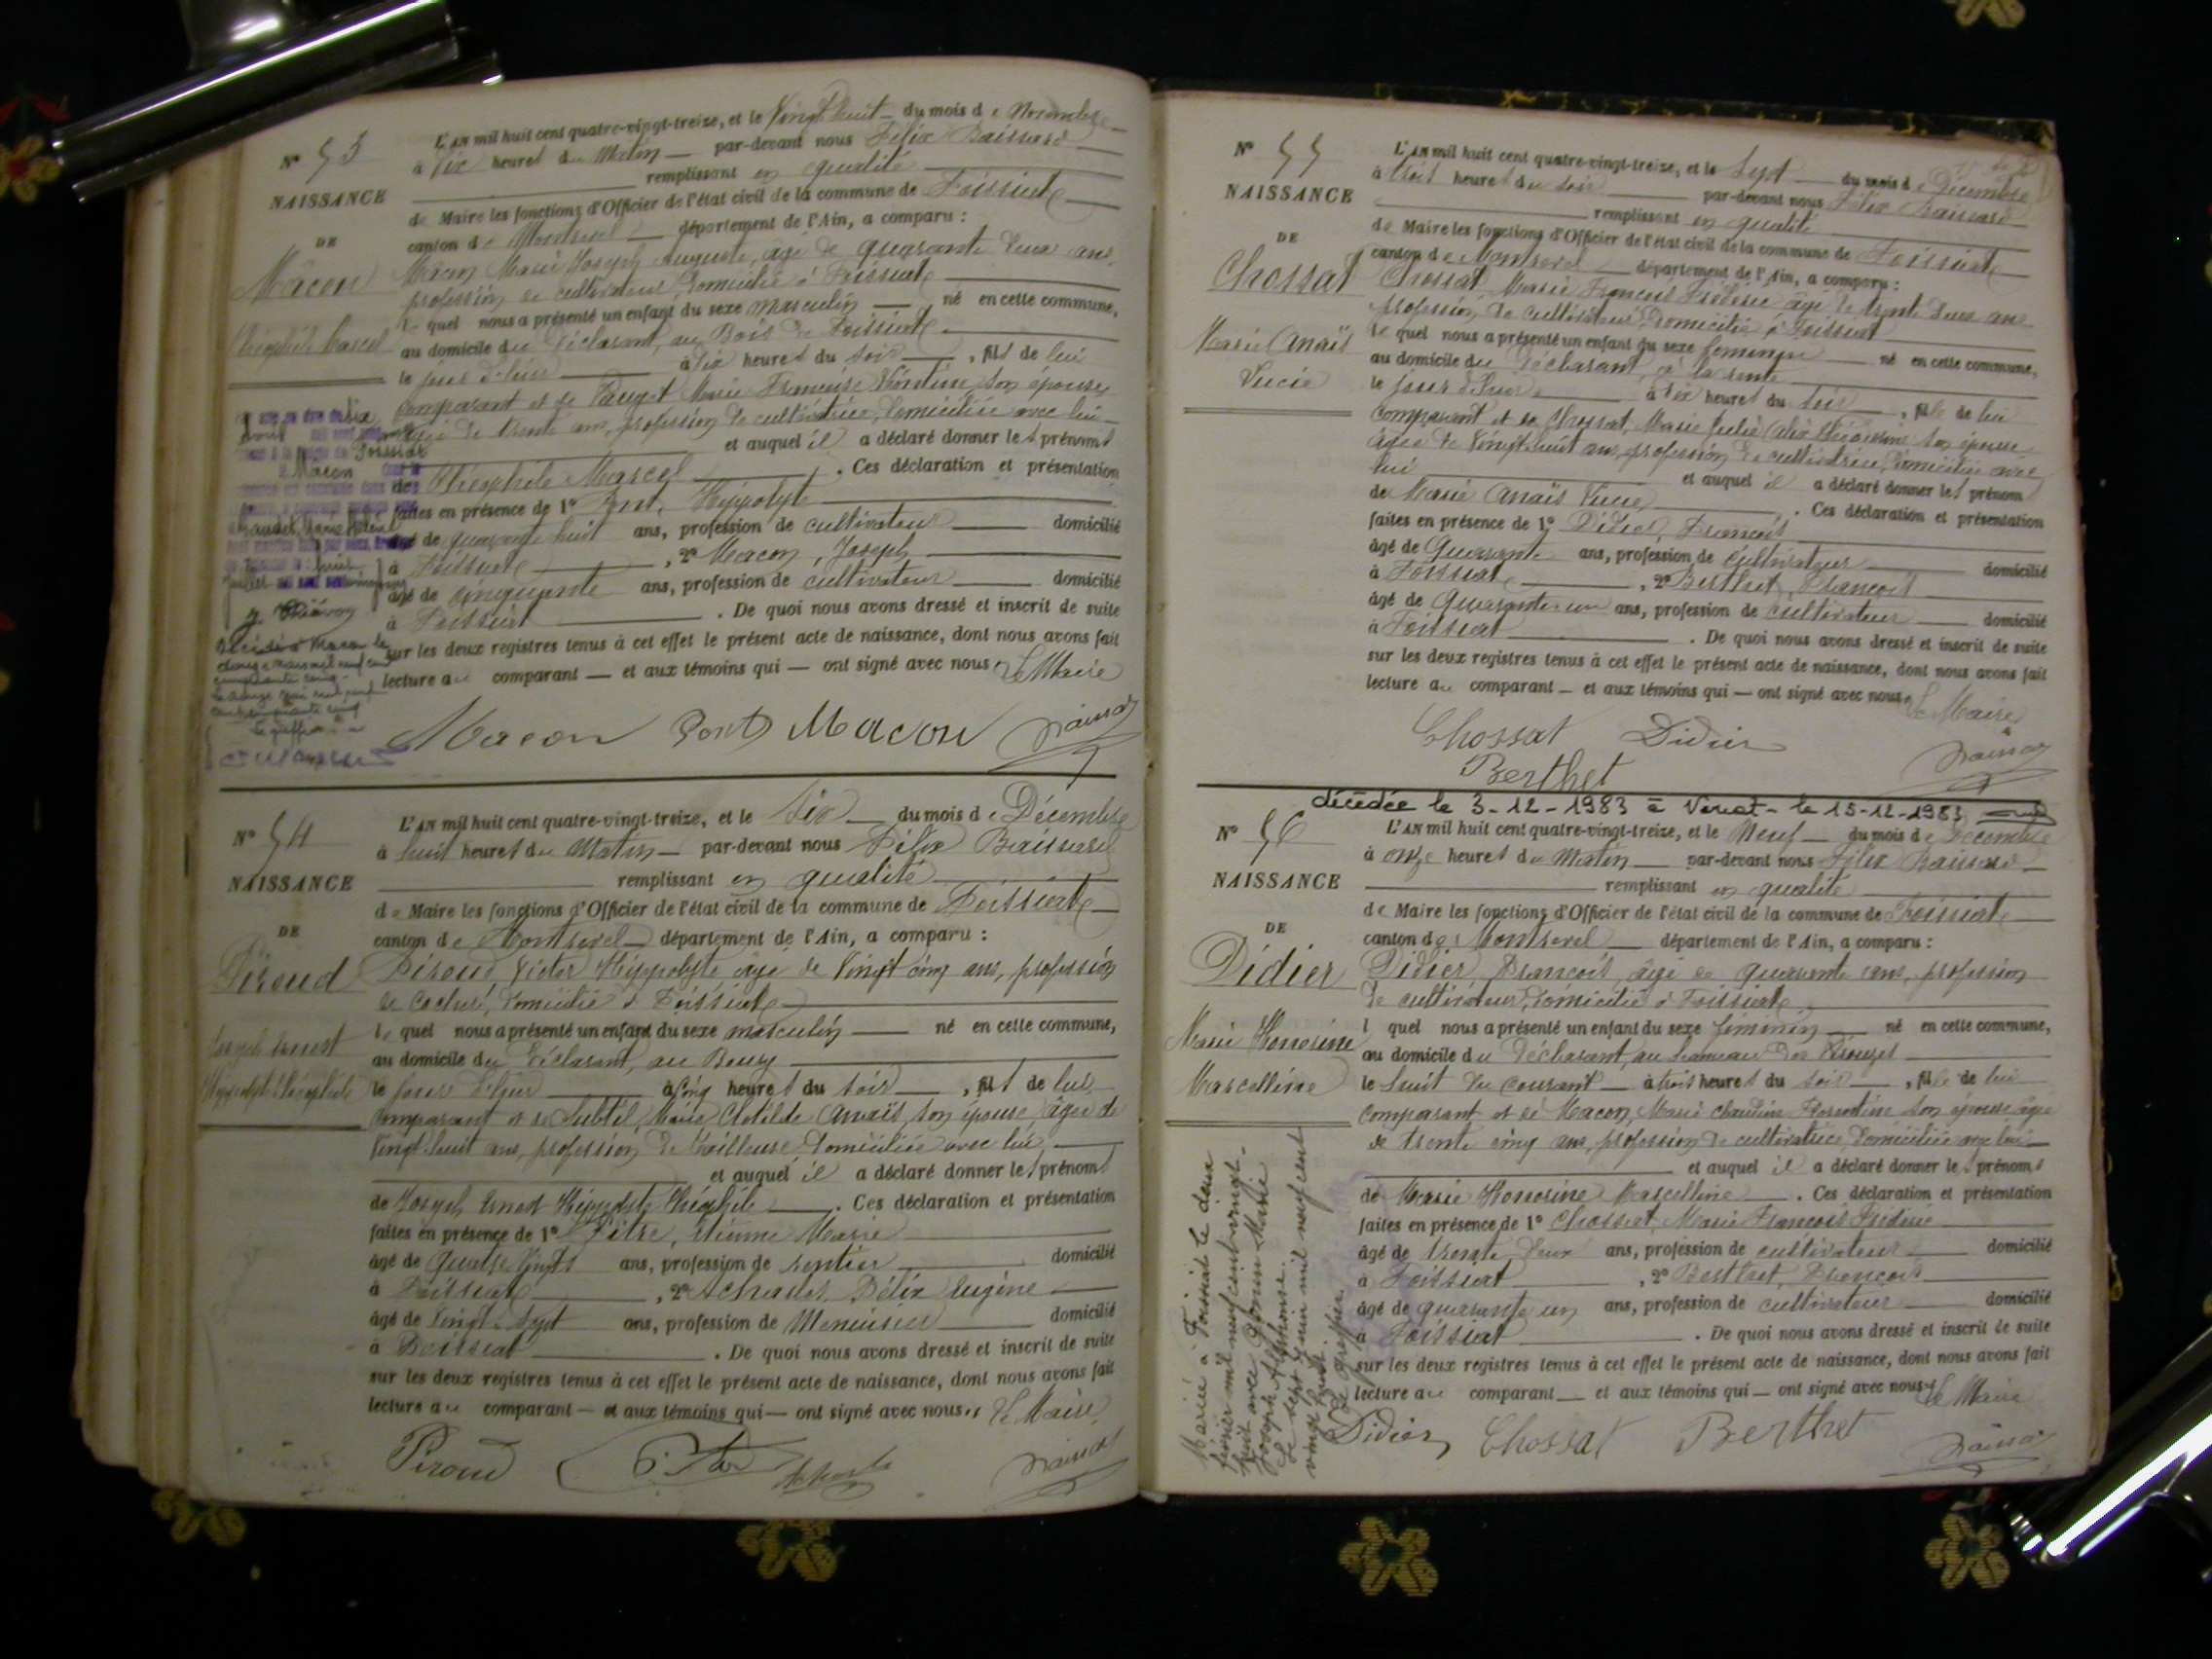 N° 53
NAISSANCE
DE
Macon
Théophile Marcel
L'AN mil huit cent quatre-vingt-treize, et le Vingt huit du mois de Novembre
à dix heures du Matin par-devant nous Félix Baissard
remplissant en qualité
de Maire les fonctions d'Officier de l'état civil de la commune de Foissiat
canton de Montrevel département de l'Ain, a comparu :
Macon Marie Joseph Auguste, âgé de quarante deux ans,
profession de cultivateur, domicilié à Foissiat
le quel nous a présenté un enfant du sexe masculin né en cette commune,
au domicile du déclarant, au Bois de Foissiat
le jour d'hier à dix heures du soir, fils de lui
comparant et de Pauget Marie Françoise Léontine, son épouse,
âgée de trente ans, profession de cultivatrice, domiciliée avec lui
et auquel il a déclaré donner les prénoms
de Théophile Marcel. Ces déclaration et présentation
faites en présence de 1° Pont, Hyppolyte
âgé de quarante huit ans, profession de cultivateur domicilié
à Foissiat, 2° Macon, Joseph
âgé de cinquante ans, profession de cultivateur domicilié
à Foissiat. De quoi nous avons dressé et inscrit de suite
sur les deux registres tenus à cet effet le présent acte de naissance, dont nous avons fait
lecture au comparant et aux témoins qui ont signé avec nous. Le Maire
Macon Pont Macon
N° 54
NAISSANCE
DE
Piroud
Joseph Ernest
Hyppolyte Théophile
L'AN mil huit cent quatre-vingt-treize, et le dix du mois de Décembre
à huit heures du Matin par-devant nous Félix Baissard
remplissant en qualité
de Maire les fonctions d'Officier de l'état civil de la commune de Foissiat
canton de Montrevel département de l'Ain, a comparu :
Piroud, Victor Hyppolyte âgé de Vingt cinq ans, profession
de domicilié à Foissiat
le quel nous a présenté un enfant du sexe masculin né en cette commune,
au domicile du déclarant, au Bourg
le jour d'hier à cinq heures du soir, fils de lui
comparant et de Subtil, Marie Clotilde Anaïs, son épouse, âgée de
Vingt-huit ans, profession de tailleuse, domiciliée avec lui,
et auquel il a déclaré donner les prénoms
de Joseph Ernest Hyppolyte Théophile. Ces déclaration et présentation
faites en présence de 1° Pitre, Etienne Marie
âgé de Quatre Vingts ans, profession de rentier domicilié
à Foissiat, 2° Félix Eugène
âgé de Vingt-Sept ans, profession de Menuisier domicilié
à Foissiat. De quoi nous avons dressé et inscrit de suite
sur les deux registres tenus à cet effet le présent acte de naissance, dont nous avons fait
lecture au comparant et aux témoins qui ont signé avec nous. Le Maire
Piroud
N° 55
NAISSANCE
DE
Chossat
Marie Anaïs
Lucie
L'AN mil huit cent quatre-vingt-treize, et le Sept du mois de Décembre
à trois heures du soir par-devant nous Félix Baissard
remplissant en qualité
de Maire les fonctions d'Officier de l'état civil de la commune de Foissiat
canton de Montrevel département de l'Ain, a comparu :
Chossat Marie François Frédéric âgé de trente deux ans
profession de cultivateur, domicilié à Foissiat
le quel nous a présenté un enfant du sexe féminin né en cette commune,
au domicile du déclarant, à la
le jour d'hier à dix heures du soir, fille de lui
comparant et de Chossat, Marie Julie son épouse,
âgée de Vingt-huit ans, profession de cultivatrice, domiciliée avec
lui et auquel il a déclaré donner les prénoms
de Marie Anaïs Lucie. Ces déclaration et présentation
faites en présence de 1° Didier, François
âgé de Quarante ans, profession de cultivateur domicilié
à Foissiat, 2° Berthet, François
âgé de Quarante-un ans, profession de cultivateur domicilié
à Foissiat. De quoi nous avons dressé et inscrit de suite
sur les deux registres tenus à cet effet le présent acte de naissance, dont nous avons fait
lecture au comparant et aux témoins qui ont signé avec nous. Le Maire
Chossat Didier
Berthet
décédée le 3-12-1983 à Viriat - le 15-12-1983
N° 56
NAISSANCE
DE
Didier
Marie Honorine
Marcelline
L'AN mil huit cent quatre-vingt-treize, et le Neuf du mois de Décembre
à onze heures du Matin par-devant nous Félix Baissard
remplissant en qualité
de Maire les fonctions d'Officier de l'état civil de la commune de Foissiat
canton de Montrevel département de l'Ain, a comparu :
Didier, François, âgé de quarante ans, profession
de cultivateur, domicilié à Foissiat
l quel nous a présenté un enfant du sexe féminin né en cette commune,
au domicile du déclarant, au hameau des
le huit du courant à trois heures du soir, fille de lui
comparant et de Macon, Marie Claudine Florentine son épouse âgée
de trente cinq ans, profession de cultivatrice, domiciliée avec lui
et auquel il a déclaré donner les prénoms
de Marie Honorine Marcelline. Ces déclaration et présentation
faites en présence de 1° Chossat, Marie François Frédéric
âgé de trente deux ans, profession de cultivateur domicilié
à Foissiat, 2° Berthet, François
âgé de quarante un ans, profession de cultivateur domicilié
à Foissiat. De quoi nous avons dressé et inscrit de suite
sur les deux registres tenus à cet effet le présent acte de naissance, dont nous avons fait
lecture au comparant et aux témoins qui ont signé avec nous. Le Maire
Didier Chossat Berthet
Mariée à Foissiat le deux
février mil neuf cent vingt-
huit avec Marie
Joseph Alphonse.
Le sept juin mil neuf cent
vingt huit.
Le greffier,